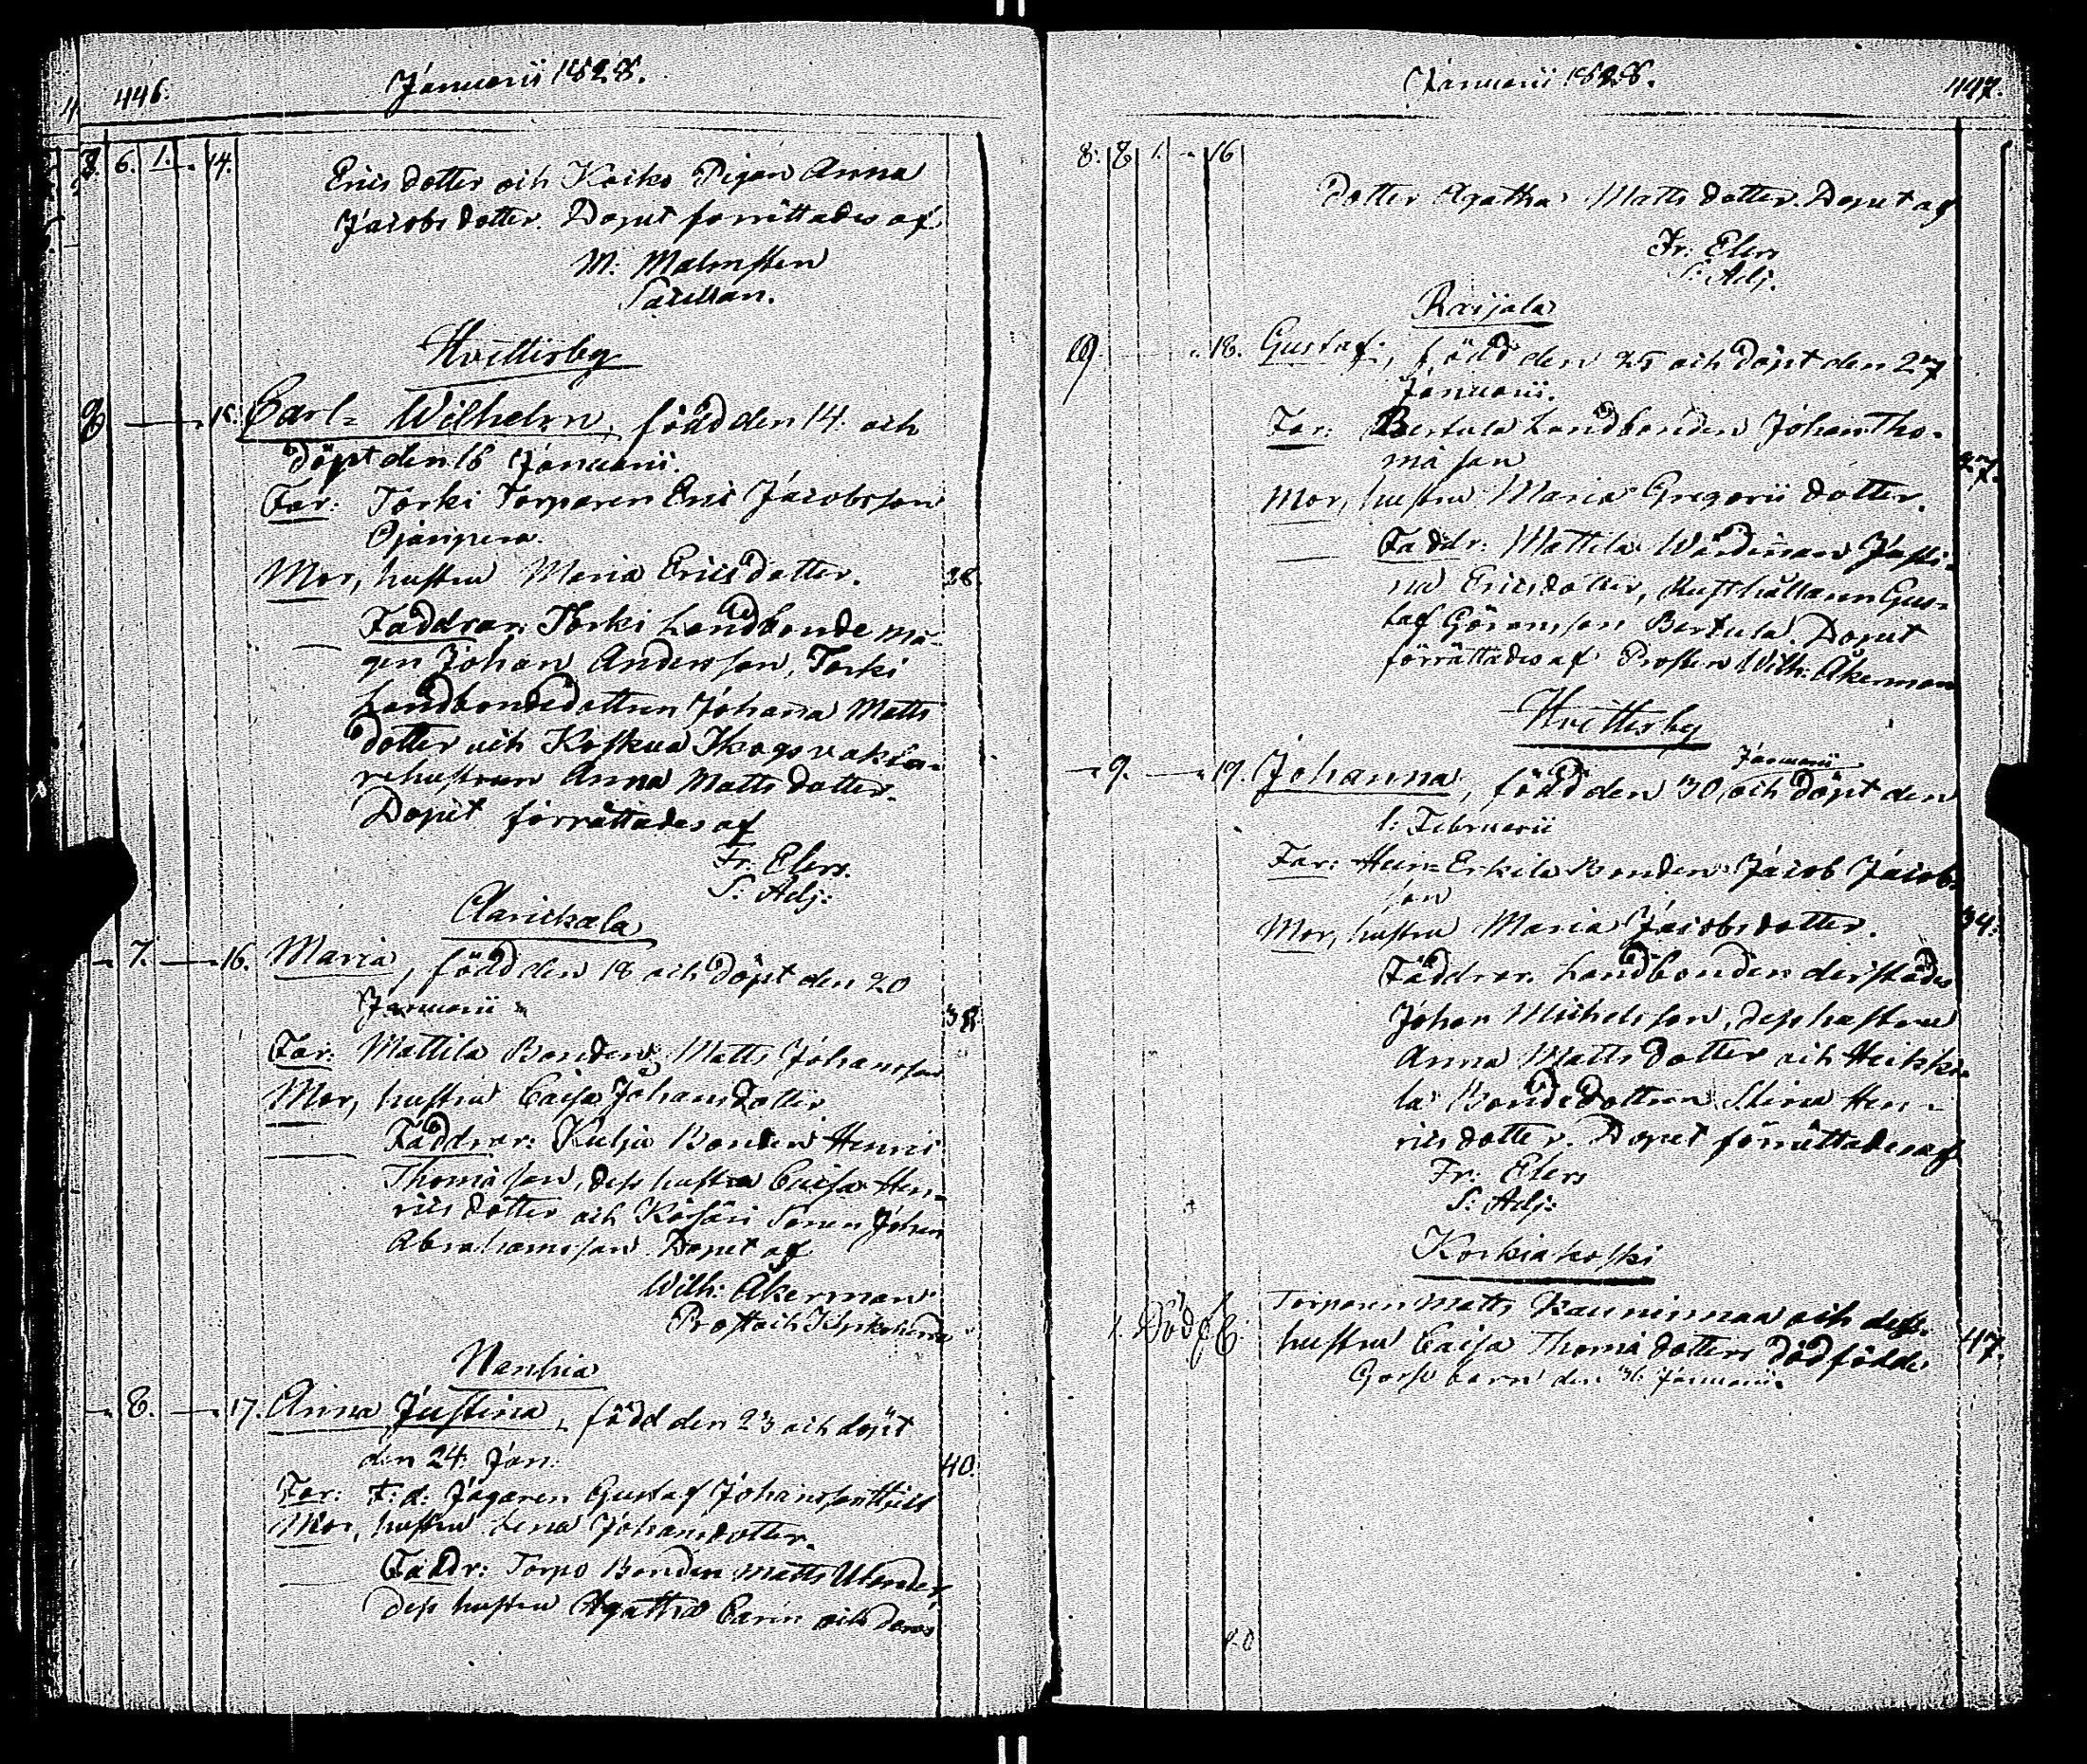 446. Januarii 1828.
8. 6. 1. 14.
Erics dotter och Koiko Pigan Anna
Jacobs dotter. Dopet förrättades af
M: Malmsten
Sacellan.
Hvittisby
15. Carl Wilhelm, född den 14. och
döpt den 16 Januarii.
Far: Torki Torparen Eric Jacobsson
Ojanpera.
Mor, hustru Maria Ericsdotter. 28.
Faddrar: Torki Landbonde må-
gen Johan Andersson, Torki
Landbondedottren Johanna Matts
dotter och Koskua Skogsvakta-
rehustrun Anna Matts dotter.
Dopet förrättades af
Fr: Elers.
S: Adj:
7. 16. Maria, född den 18 och döpt den 20
Januarii 38.
Far: Mattila Bonden Matts Johansson
Mor, hustru Caisa Johansdotter.
Faddrar: Bonden Henric
Thomasson, dess hustru Caisa Hen-
rics dotter och Sonen Johan
Abrahamsson. Dopet af
Wilh: Åkerman
Prost och Kyrkoherde
Nanhia
8. 17. Anna Justina, född den 23 och döpt
den 24. Jan: 40.
Far: F: d: Jägaren Gustaf Johansson
Mor, hustru Lena Johansdotter.
Faddr: Torpo Bonden Matts
dess hustru Agatha Carin och deras
Januarii 1828. 447.
8. 8 1. 16
dotter Agatha Matts dotter. Dopet af
Fr: Elers
S: Adj.
Raijala
18. Gustaf, född den 25 och döpt den 27
Januarii.
Far: Bertula Landbonden Johan Tho-
mä son 27.
Mor, hustru Maria Gregorii dotter.
Faddr: Mattila Värdinnan Justi-
na Ericsdotter, Husthållaren Gus-
taf Göransson Bertula. Dopet
förrättades af Prosten Wilh: Åkerman
Hvittisby
9. 19. Johanna, född den 30 Januarii och döpt den
1: Februarii
Far: Hein-Erkila Bonden Jacob Jacobs
son
Mor, hustru Maria Jacobsdotter. 34.
Faddrar. Landbonden derstädes
Johan Michelsson, dess hustru
Anna Matts dotter och Heikki-
la Bondedottren Stina Hen-
rics dotter. Dopet förrättades af
Fr: Elers
S: Adj:
Korkiakoski
1. Dödf. Torparen Matts Kauninmaa och dess
hustru Caisa Thomä dotters dödfödde 47.
Gosse barn den 31. Januarii.